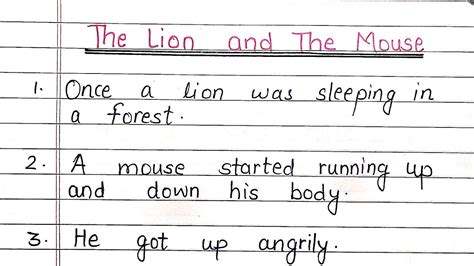 The Lion and The Mouse
1. Once a lion was sleeping in
a forest.
2. A mouse started running up
and down his body.
3. He got up angrily.